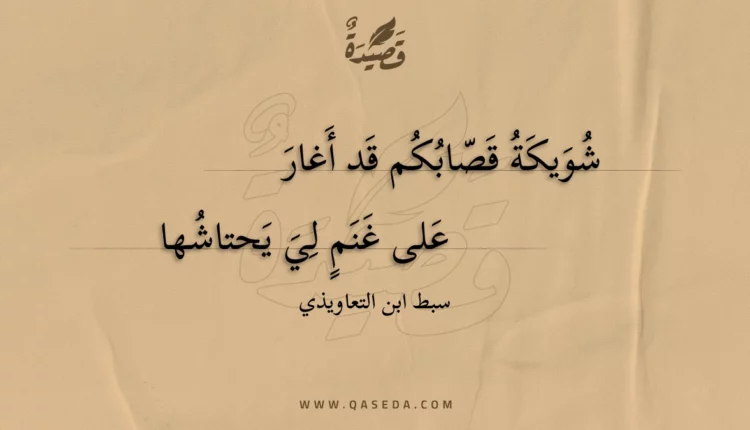 قَصِيدَةٌ
شُوَيكَةُ قَصّابُكُم قَد أَغارَ
عَلى غَنَمٍ لِيَ يَحتاشُها
سبط ابن التعاويذي
WWW.QASEDA.COM